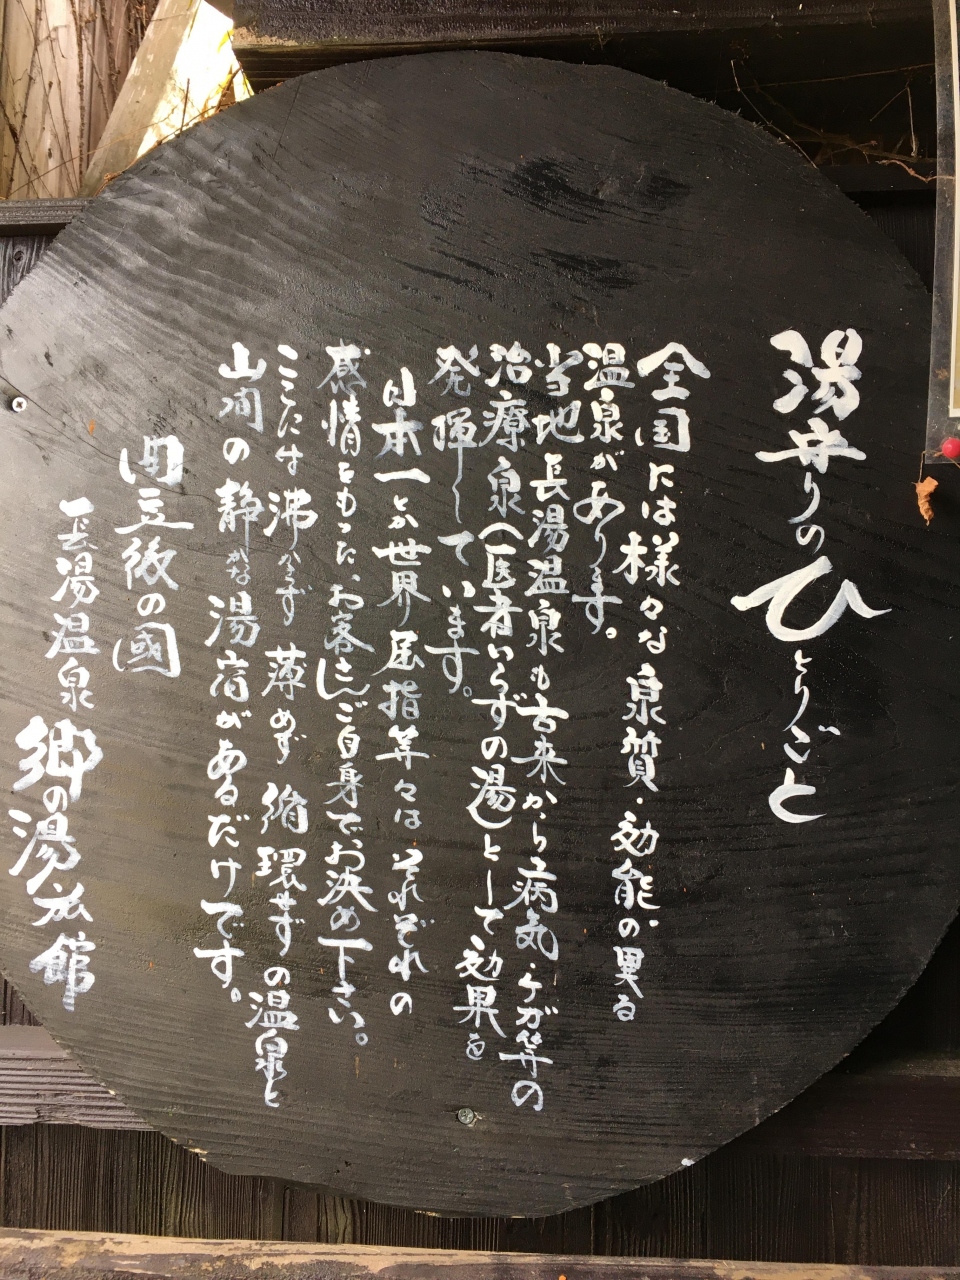 湯守りのひとりごと
全国には様々な泉質・効能の異る
温泉があります。
当地長湯温泉も古来から病気・ケガ等の
治療泉(医者いらずの湯)として効果を
発揮しています。
日本一とか世界屈指等々はそれぞれの
感情をもった、お客さんご自身でお決め下さい。
ここには沸かさず薄めず循環せずの温泉と
山間の静かな湯宿があるだけです。
豊後の國
長湯温泉 郷の湯旅館